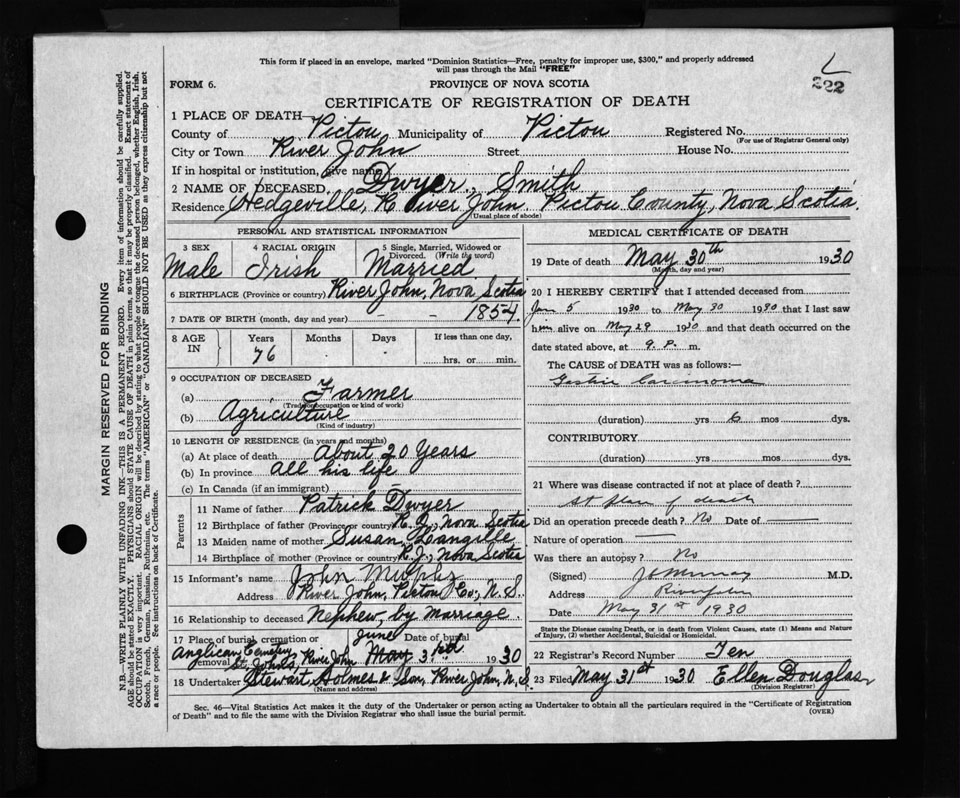 This form if placed in an envelope, marked "Dominion Statistics—Free, penalty for improper use, $300," and properly addressed
will pass through the Mail "FREE"
222
FORM 6.
PROVINCE OF NOVA SCOTIA
CERTIFICATE OF REGISTRATION OF DEATH
1 PLACE OF DEATH—
County of Pictou Municipality of Pictou Registered No.
(For use of Registrar General only)
City or Town River John Street House No.
If in hospital or institution, give name
2 NAME OF DECEASED, Dwyer, Smith
Residence Hedgeville, River John Pictou County, Nova Scotia.
(Usual place of abode)
PERSONAL AND STATISTICAL INFORMATION
3 SEX 4 RACIAL ORIGIN 5 Single, Married, Widowed or Divorced. (Write the word)
Male Irish Married
6 BIRTHPLACE (Province or country) River John, Nova Scotia
7 DATE OF BIRTH (month, day and year) - - 1854.
8 AGE IN Years Months Days If less than one day,
76 hrs. or min.
9 OCCUPATION OF DECEASED
(a) Farmer
(Trade, occupation or kind of work)
(b) Agriculture
(Kind of industry)
10 LENGTH OF RESIDENCE (in years and months)
(a) At place of death About 20 Years
(b) In province All his life
(c) In Canada (if an immigrant)
Parents
11 Name of father Patrick Dwyer
12 Birthplace of father (Province or country) R. J., Nova Scotia
13 Maiden name of mother Susan Langille
14 Birthplace of mother (Province or country) R. J., Nova Scotia
15 Informant's name John Murphy
Address River John, Pictou Co., N. S.
16 Relationship to deceased Nephew, by Marriage.
17 Place of burial, cremation or removal Date of burial
Anglican Cemetery St. Johns, River John June May 1930
18 Undertaker Stewart Holmes & Son, River John, N. S.
(Name and address)
MEDICAL CERTIFICATE OF DEATH
19 Date of death May 30th 1930
(Month, day and year)
20 I HEREBY CERTIFY that I attended deceased from
Jan 5 1930 to May 30 1930 that I last saw
him alive on May 29 1930 and that death occurred on the
date stated above, at 9. P. m.
The CAUSE of DEATH was as follows:—
Gastric Carcinoma
(duration) yrs 6 mos dys.
CONTRIBUTORY
(duration) yrs. mos. dys.
21 Where was disease contracted if not at place of death?
At place of death
Did an operation precede death? No Date of
Nature of operation
Was there an autopsy? No
(Signed) Murray M.D.
Address River John
Date May 31st 1930
State the Disease causing Death, or in death from Violent Causes, state (1) Means and Nature
of Injury, (2) whether Accidental, Suicidal or Homicidal.
22 Registrar's Record Number Ten
23 Filed May 31st 1930 Ellen Douglas
(Division Registrar)
Sec. 46—Vital Statistics Act makes it the duty of the Undertaker or person acting as Undertaker to obtain all the particulars required in the "Certificate of Registration
of Death" and to file the same with the Division Registrar who shall issue the burial permit. (OVER)
MARGIN RESERVED FOR BINDING
N.B.—WRITE PLAINLY WITH UNFADING INK—THIS IS A PERMANENT RECORD. Every item of information should be carefully supplied.
AGE should be stated EXACTLY. PHYSICIANS should STATE CAUSE OF DEATH in plain terms, so that it may be properly classified. Exact statement of
OCCUPATION is very important. RACIAL ORIGIN will be described by stating to what people or tongue the deceased person belonged, whether English, Irish,
Scotch, French, German, Russian, Ruthenian, etc. The terms "AMERICAN" or "CANADIAN" SHOULD NOT BE USED as they express citizenship but not
a race or people. See instructions on back of Certificate.